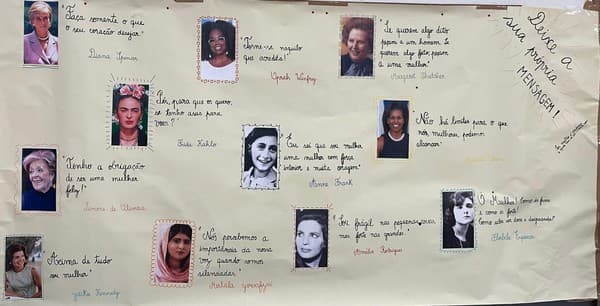 "Faça somente o que
o seu coração desejar."
Diana Spencer
"Torne-se naquilo
que acredita!"
Oprah Winfrey
"Se querem algo dito,
peçam a um homem. Se
querem algo feito, peçam
a uma mulher"
Margaret Thatcher
Deixe a
sua própria
MENSAGEM!
"Pés, para que os quero,
se tenho asas para
voar?"
Frida Kahlo
"Eu sei que sou mulher
uma mulher com força
interior e muita coragem"
Anne Frank
"Não há limites para o que
nós, mulheres, podemos
alcançar"
"Tenho a obrigação
de ser uma mulher
feliz!"
Simone de Oliveira
"Acima de tudo
sou mulher"
Kennedy
"Nós percebemos a
importância da nossa
voz quando somos
silenciadas"
Malala
"Sou frágil nas pequenas coisas
mas forte nas grandes"
Amália Rodrigues
"Ó Mulher! Como és fraca
e como és forte!
Como sabes ser doce e desgraçada!"
Florbela Espanca